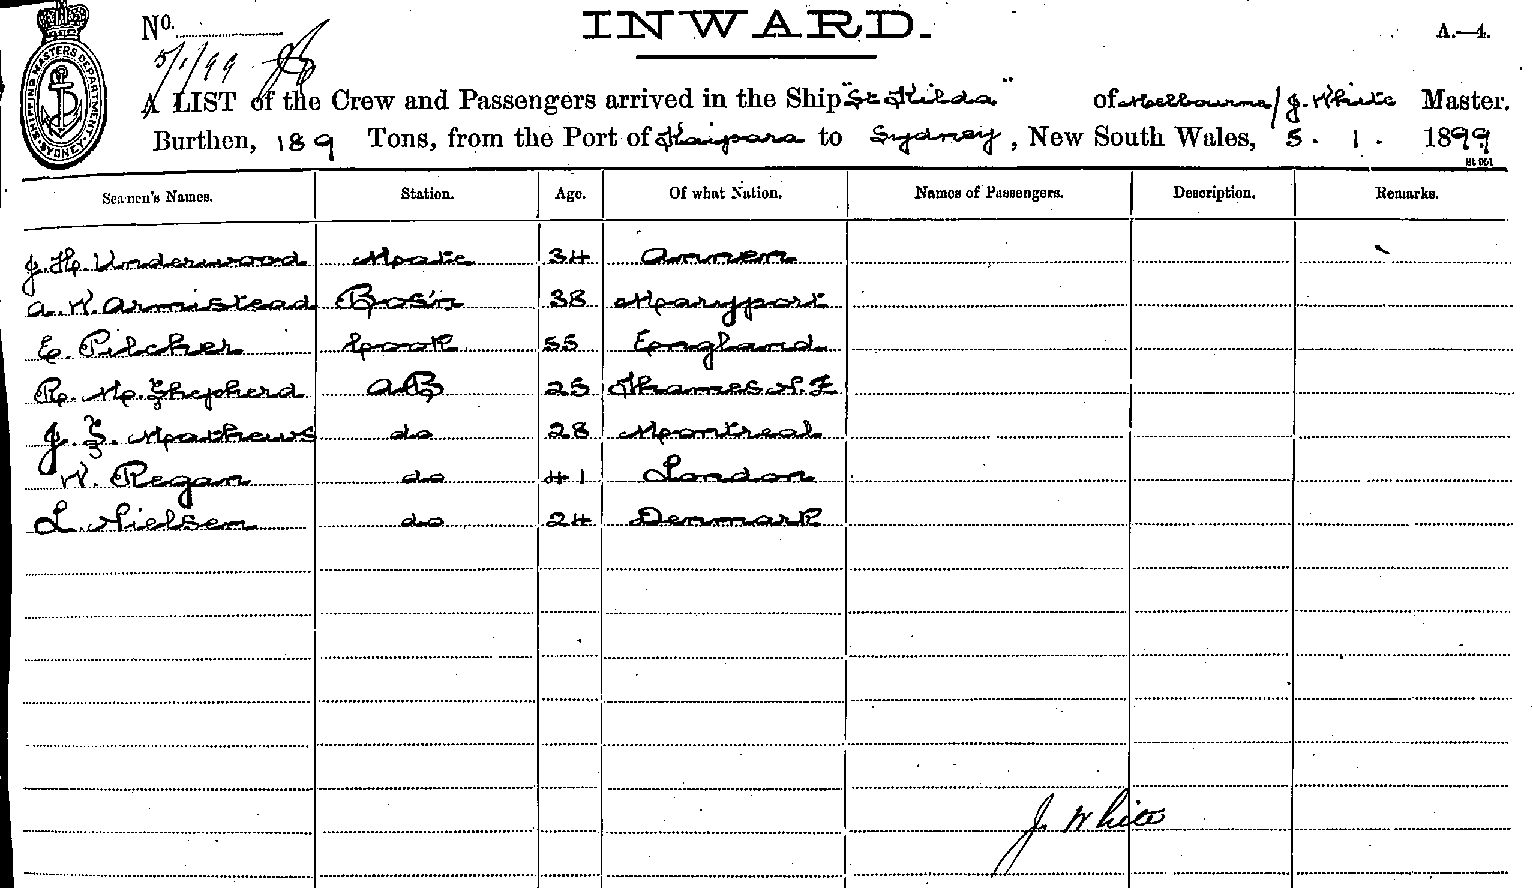 INWARD.
A.—4.
No.
5/1/99
SHIPPING MASTERS DEPARTMENT SYDNEY
A LIST of the Crew and Passengers arrived in the Ship "St Kilda" of Melbourne / J. White Master.
Burthen, 189 Tons, from the Port of Kaipara to Sydney, New South Wales, 5. 1. 1899
Seamen's Names. Station. Age. Of what Nation. Names of Passengers. Description. Remarks.
J. H. Underwood Mate 34
A. W. Armistead Bos'n 38 Maryport
E. Pilcher Cook 55 England
R. M. Shepherd AB 25 Thames N.Z
J. S. Mathews do 28 Montreal
W. Regan do 41 London
L. Nielsen do 24 Denmark
J. White